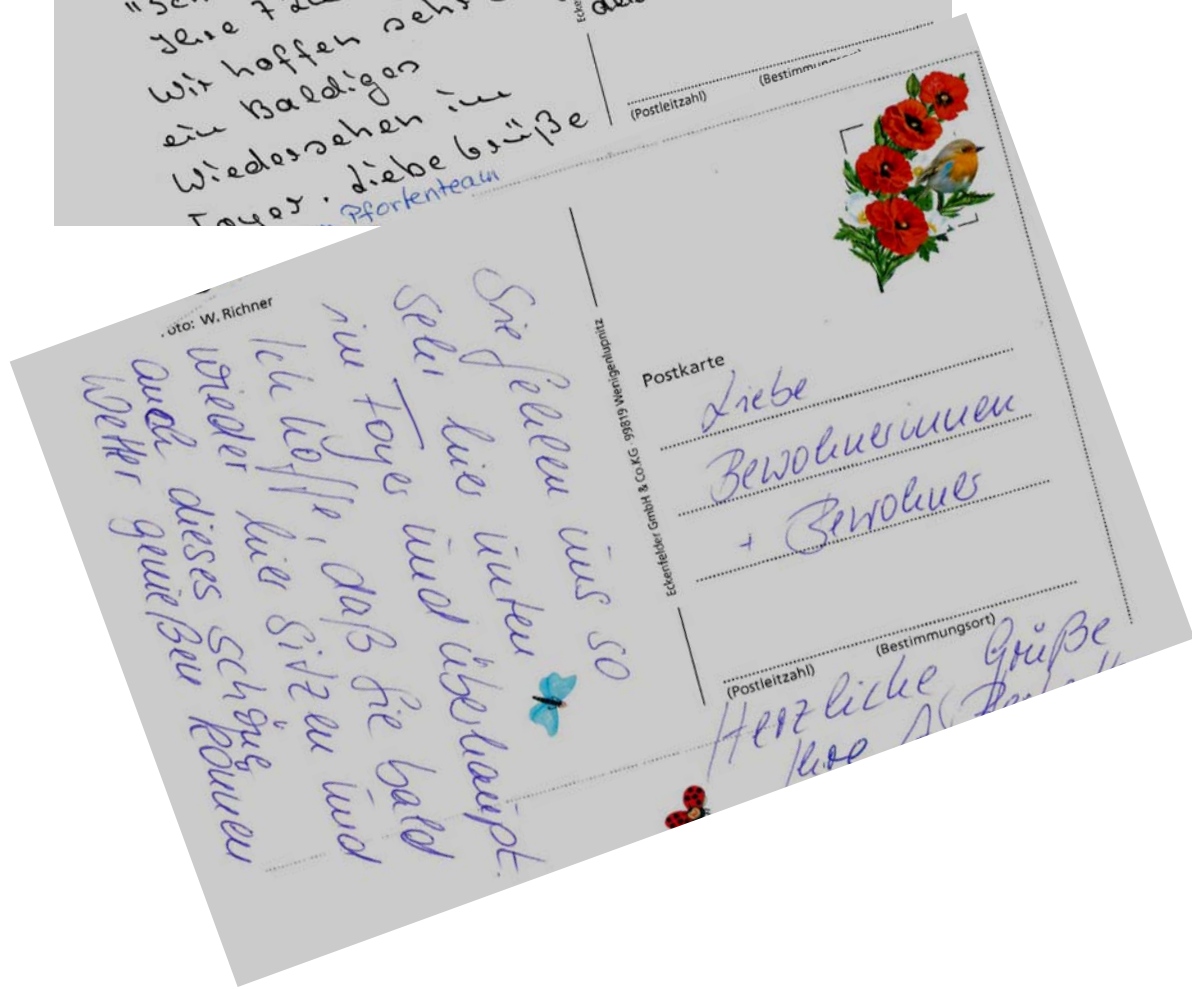 Ihre
Wir hoffen sehr
ein Baldiges
Wiedersehen im
Foyer. Liebe Grüße
Pfortenteam
(Postleitzahl)
Foto: W. Richner
Sie fehlen uns so
sehr hier unten
im Foyer und überhaupt.
Ich hoffe, daß Sie bald
wieder hier sitzen und
auch dieses schöne
Wetter genießen können
Eckenfelder GmbH & Co.KG · 99819 Wenigenlupnitz
Postkarte
Liebe
Bewohnerinnen
+ Bewohner
(Postleitzahl)
(Bestimmungsort)
Herzliche Grüße
Ihre